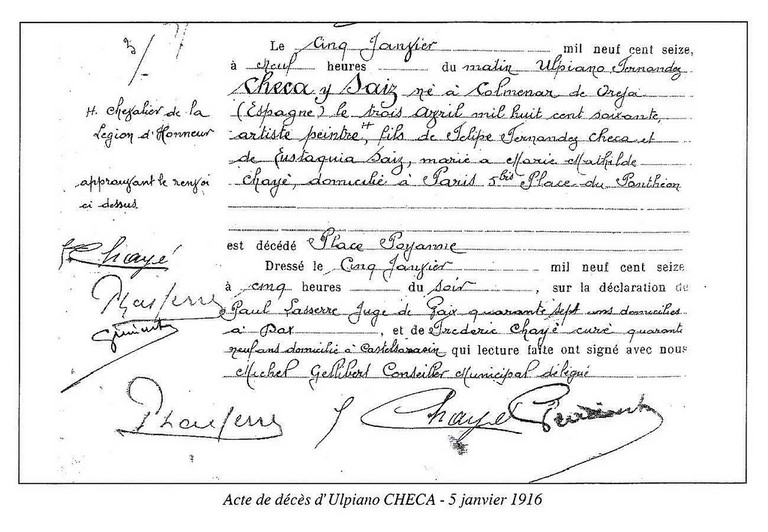 Le Cinq Janvier mil neuf cent seize,
à neuf heures du matin Ulpiano Fernandez
Checa y Saiz né à Colmenar de Oreja
(Espagne) le trois avril mil huit cent soixante,
artiste peintre, H fils de Felipe Fernandez Checa et
de Eustaquia Saiz, marié à Marie Mathilde
Chayé, domicilié à Paris 5bis Place du Panthéon
est décédé Place Poyanne
Dressé le Cinq Janvier mil neuf cent seize
à cinq heures du soir, sur la déclaration de
Paul Lasserre Juge de Paix quarante sept ans domiciliés
à Dax, et de Frédéric Chayé curé quarante
neuf ans domicilié à Castelsarrasin qui lecture faite ont signé avec nous
Michel Gellibert Conseiller Municipal délégué
H. Chevalier de la
Légion d'Honneur
approuvant le renvoi
ci dessus
Chayé
Chayé
Acte de décès d'Ulpiano CHECA - 5 janvier 1916